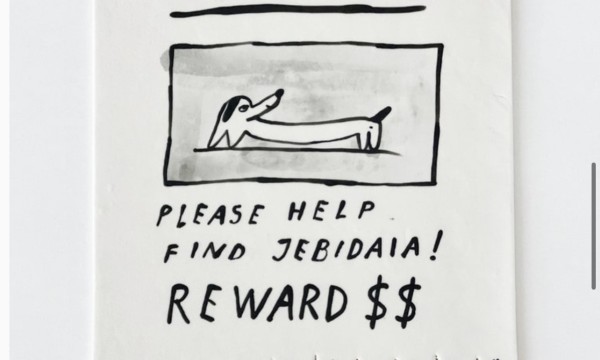 PLEASE HELP
FIND JEBIDAIA!
REWARD $$